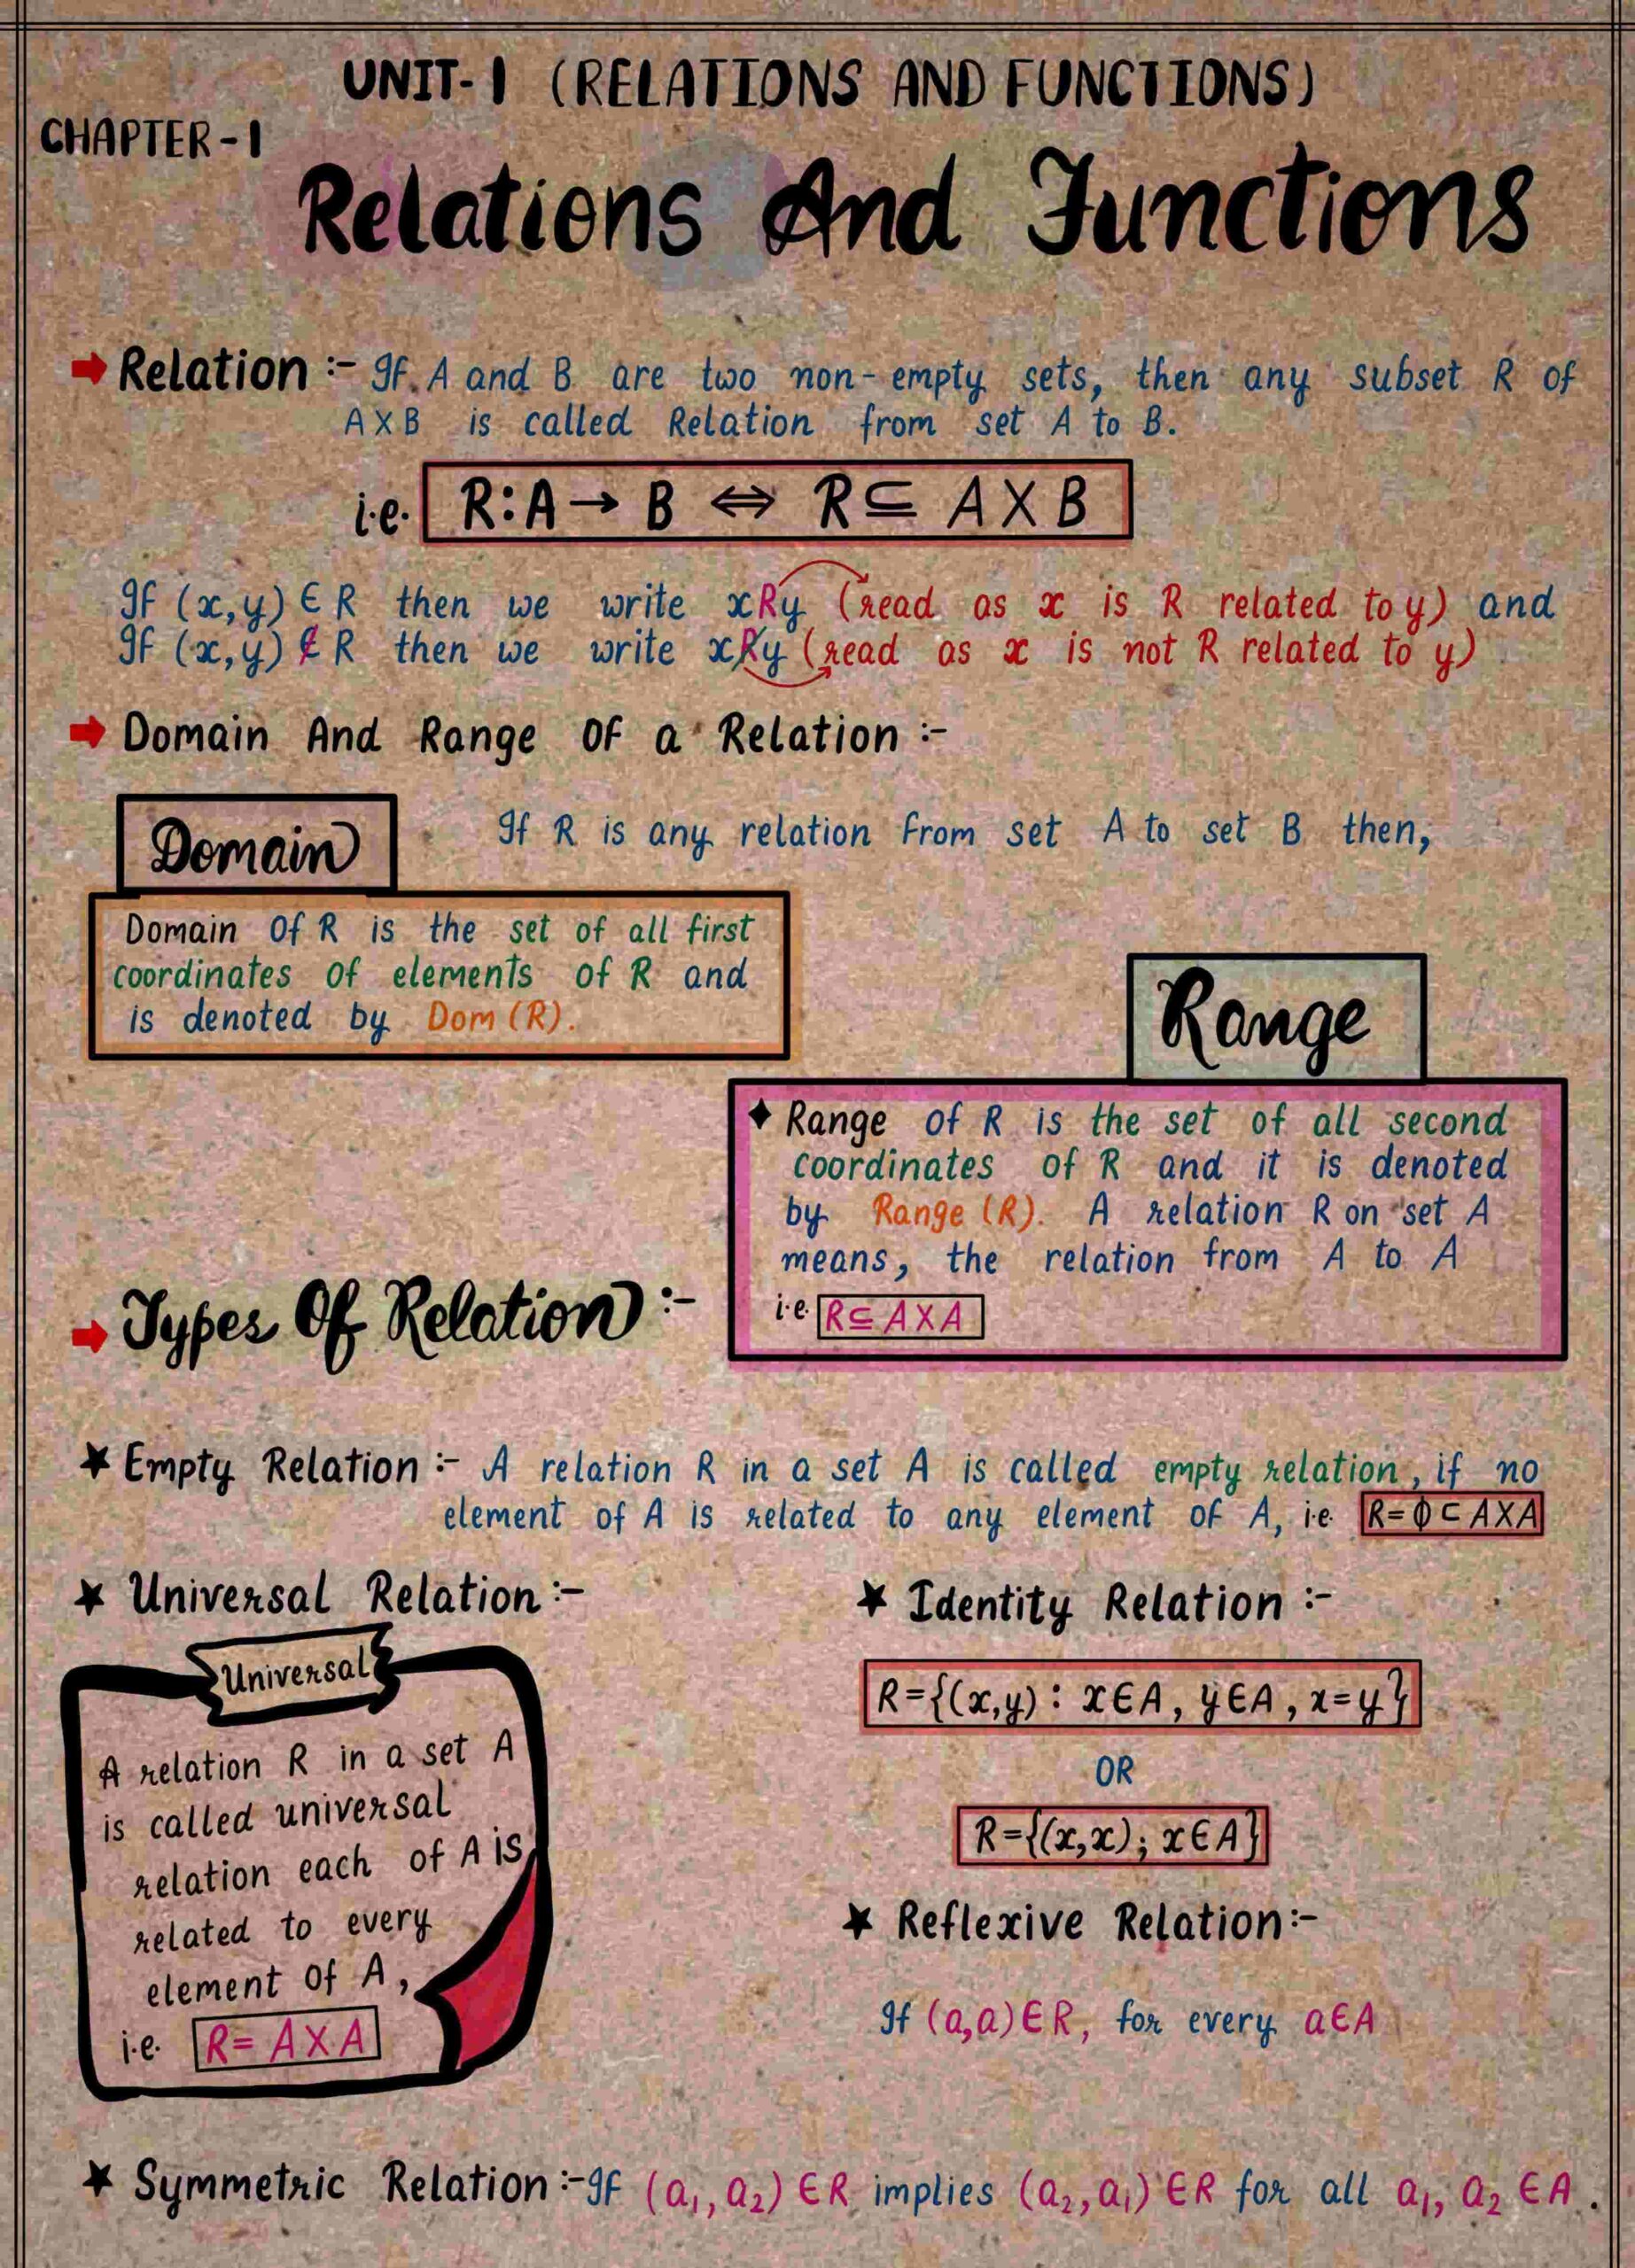 UNIT-1 (RELATIONS AND FUNCTIONS)
CHAPTER-1
Relations And Functions
Relation :- If A and B are two non-empty sets, then any subset R of
A X B is called Relation from set A to B.
i.e. R:A → B ⇔ R ⊆ A X B
If (x,y) ∈ R then we write xRy (read as x is R related to y) and
If (x,y) ∉ R then we write xR̸y (read as x is not R related to y)
Domain And Range Of a Relation :-
Domain
If R is any relation from set A to set B then,
Domain of R is the set of all first
coordinates of elements of R and
is denoted by Dom (R).
Range
Range of R is the set of all second
coordinates of R and it is denoted
by Range (R). A relation R on set A
means, the relation from A to A
i.e. R ⊆ A X A
Types Of Relation :-
Empty Relation :- A relation R in a set A is called empty relation, if no
element of A is related to any element of A, i.e. R= ϕ ⊂ A X A
Universal Relation :-
Universal
A relation R in a set A
is called universal
relation each of A is
related to every
element of A,
i.e. R= A X A
Identity Relation :-
R={(x,y) : x∈A, y∈A, x=y}
OR
R={(x,x); x∈A}
Reflexive Relation:-
If (a,a)∈R, for every a∈A
Symmetric Relation :- If (a₁, a₂) ∈R implies (a₂, a₁) ∈R for all a₁, a₂ ∈A.